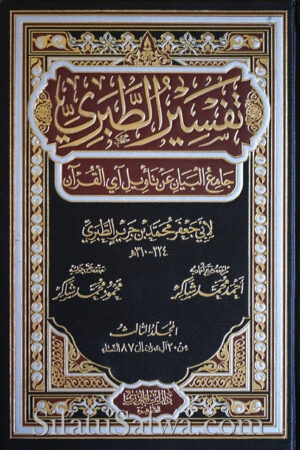 تفسير الطبري
جامع البيان عن تأويل آي القرآن
لأبي جعفر محمد بن جرير الطبري
٢٢٤-٣١٠هـ
أحمد محمد شاكر
محمود محمد شاكر
المجلد الثالث
من ٢٠ آل عمران إلى ٨٧ النساء
القاهرة
SilatuSalwa.com